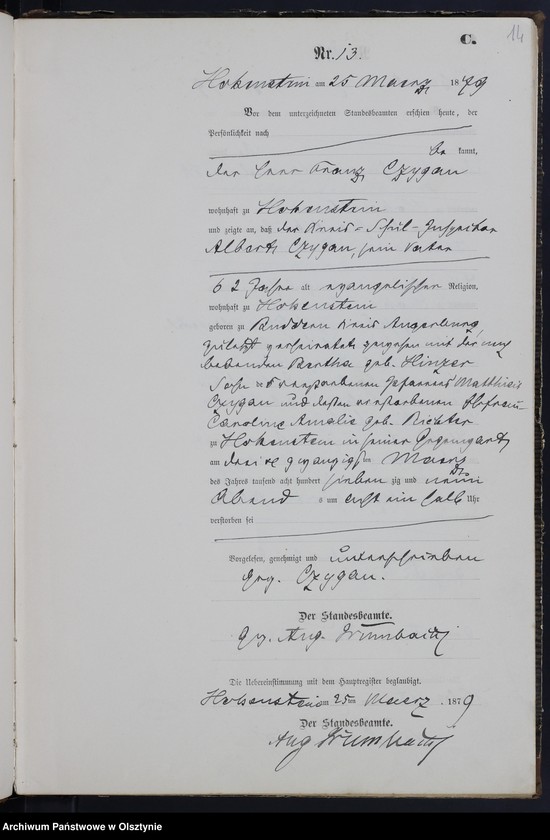 C.
14
Nr. 13.
Hohenstein am 25 Maerz 1879
Vor dem unterzeichneten Standesbeamten erschien heute, der
Persönlichkeit nach
be kannt,
der Herr Franz Czygan
wohnhaft zu Hohenstein
und zeigte an, daß der Kreis-Schul-Inspector
Albert Czygan, sein Vater
62 Jahre alt evangelischer Religion,
wohnhaft zu Hohenstein
geboren zu Buddern Kreis Angerburg,
zuletzt verheirathet gewesen mit der noch
lebenden Bertha geb. Hinzer
Sohn des verstorbenen Johannes Matthias
Czygan und dessen verstorbenen Ehefrau
Caroline Amalie geb. Richter
zu Hohenstein in seiner Gegenwart
am drei u zwanzigsten Maerz
des Jahres tausend acht hundert sieben zig und neun
Abends um acht ein halb Uhr
verstorben sei
Vorgelesen, genehmigt und unterschrieben
gez. Czygan.
Der Standesbeamte.
gez. Aug. Trumbach
Die Uebereinstimmung mit dem Hauptregister beglaubigt.
Hohenstein am 25ten Maerz 1879
Der Standesbeamte.
Aug Trumbach
Archiwum Państwowe w Olsztynie